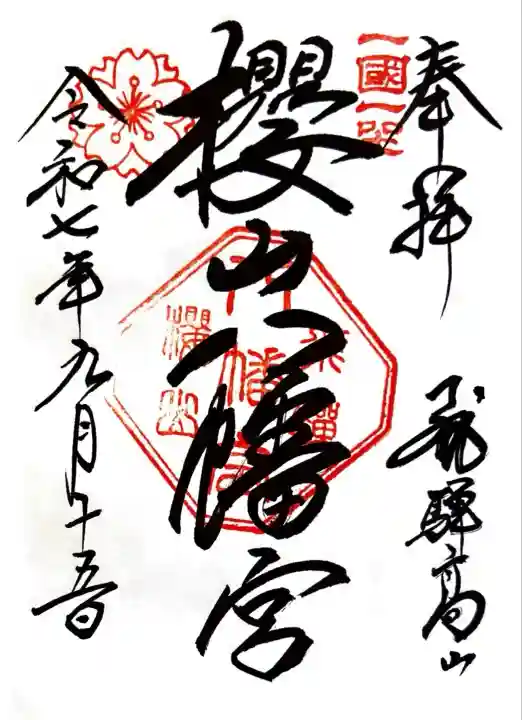 奉拝
飛騨高山
一國一
櫻山八幡宮
飛騨
八幡宮
櫻山
令和七年九月十五日